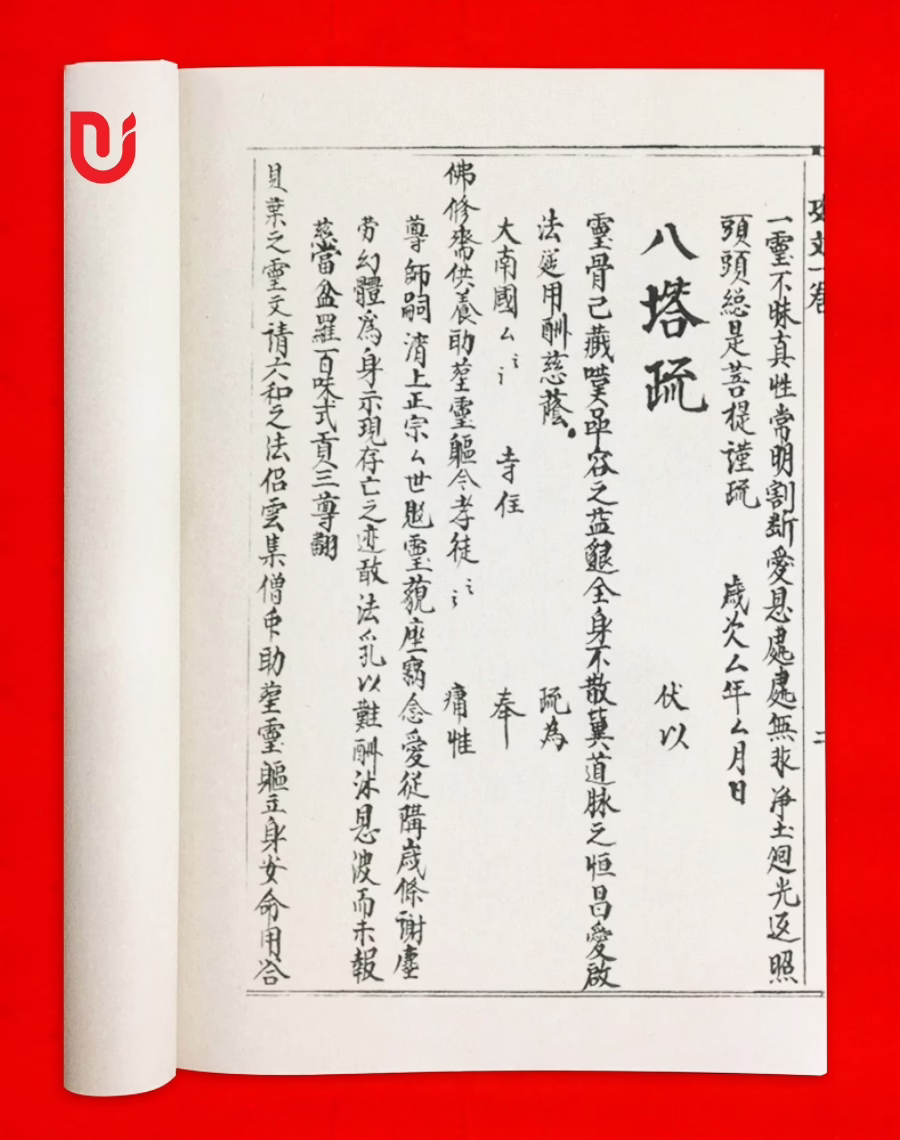 一靈不昧真性常明割斷愛恩處處無非净土迴光返照
頭頭總是菩提謹疏 歲次厶年厶月日
八塔疏
伏以
靈骨已藏嘆音容之益懇全身不散冀道脉之恒昌爰啟
法筵用酬慈蔭
疏為
大南國厶 寺住 奉
佛修齋供養助塟靈軀今孝徒 痛惟
尊師嗣濟上正宗厶世𮌎靈藐座竊念愛從講歲條謝塵
劳幻體為身示現存亡之迹敢法乳以難酬沐恩波而未報
茲當盆羅百味式貢三尊翻
貝葉之靈文请六和之法侣雲集僧中助塟靈軀立身安命用合